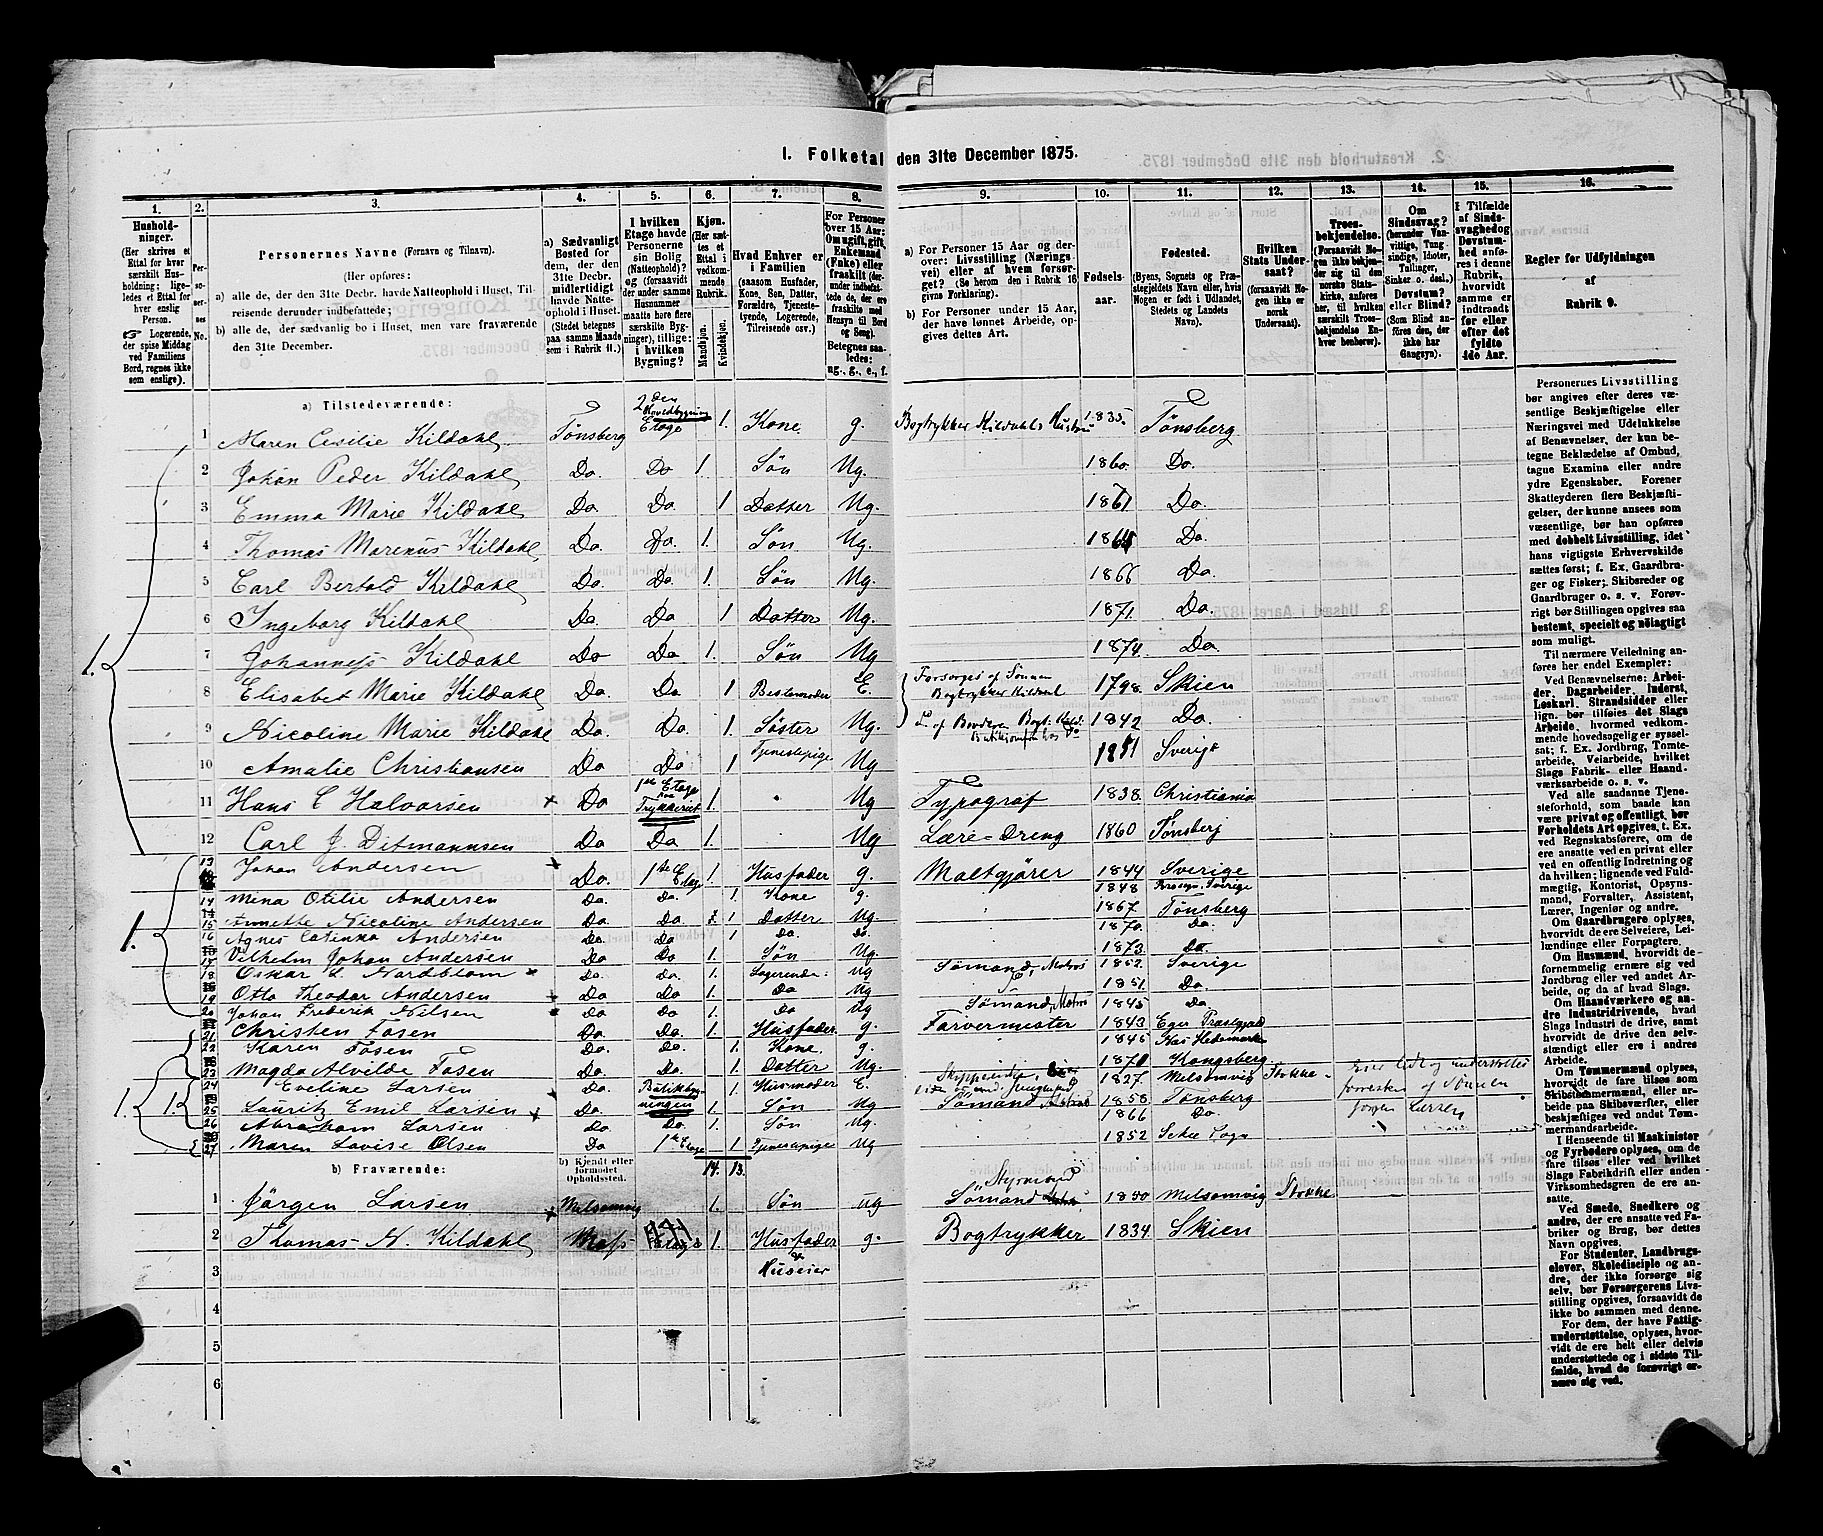 1. Folketal den 31te December 1875.
1. 2. 3. 4. 5. 6. 7. 8. 9. 10. 11. 12. 13. 14. 15. 16.
Husholdninger. (Her skrives et Ettal for hver særskilt Husholdning; ligeledes et Ettal for hver enslig Person. Logerende, der spise Middag ved Familiens Bord, regnes ikke som enslige).
Personernes No.
Personernes Navne (Fornavn og Tilnavn).
(Her opføres:
a) alle de, der den 31te Decbr. havde Natteophold i Huset, Tilreisende derunder indbefattede;
b) alle de, der sædvanlig bo i Huset, men vare fraværende den 31te December.
a) Sædvanligt Bosted for dem, der den 31te Decbr. midlertidigt havde Natteophold i Huset. (Stedet betegnes paa samme Maade som i Rubrik 11.)
I hvilken Etage havde Personerne sin Bolig (Natteophold)? og (forsaavidt der under samme Husnummer maatte høre flere særskilte Bygninger), tillige: i hvilken Bygning?
Kjøn. (Her sættes et Ettal i vedkommende Rubrik.
Mandkjøn. Kvindekjøn.
Hvad Enhver er i Familien (saasom Husfader, Kone, Søn, Datter, Forældre, Tjenestetyende, Logerende, Tilreisende osv.)
For Personer over 15 Aar: Om ugift, gift, Enkemand (Enke) eller fraskilt
Betegnes saaledes: ug., g., e., f.
a) For Personer 15 Aar og derover: Livsstilling (Næringsvei) eller af hvem forsørget? (Se herom den i Rubrik 16 givne Forklaring).
b) For Personer under 15 Aar, der have lønnet Arbeide, opgives dettes Art.
Fødselsaar.
Fødested. (Byens, Sognets og Præstegjeldets Navn, eller, hvis Nogen er født i Udlandet, Stedets og Landets Navn).
Hvilken Stats Undersaat? (forsaavidt Nogen ikke er norsk Undersaat).
Troesbekjendelse. (Forsaavidt Nogen ikke bekjender sig til den norske Statskirke, anføres her, til hvilken Troesbekjendelse Enhver henhører).
Om Sindssvag? (herunder Vanvittige, Tungsindige, Idioter, Tullinger, Sinker o. desl.), Døvstum? eller Blind? (Som Blind anføres den, der ikke har Gangsyn).
I Tilfælde af Sindssvaghed og Døvstumhed anføres i denne Rubrik, hvorvidt samme er indtraadt før eller efter det fyldte 4de Aar.
Regler for Udfyldningen af Rubrik 9.
a) Tilstedeværende:
1 Maren Cecilie Kildahl Tønsberg 2den Hovedbygning Etage 1. Kone g. Bogtrykker Kildahls Hustru 1835 Tønsberg
2 Johan Peder Kildahl Do. Do 1. Søn Ug. 1860. Do.
3 Emma Marie Kildahl Do. Do. 1 Datter Ug. 1861 Do.
4 Thomas Marenus Kildahl Do. Do. 1. Søn Ug. Do.
5 Carl Bertold Kildahl Do. Do. 1. Søn Ug. 1866 Do.
6 Ingeborg Kildahl Do. Do 1 Datter Ug. 1871. Do.
7 Johannes Kildahl Do Do 1. Søn Ug 1874. Do.
8 Elisabet Marie Kildahl Do. Do. 1 Bestemoder E. Forsørges af Sønnen Bogtrykker Kildahl 1798. Skien
9 Nicoline Marie Kildahl Do. Do. 1. Søster Ug. F. af Broderen Bogt. Kild. 1842 Do.
10 Amalie Christiansen Do Do 1 Tjenestepige Ug Sverige
11 Hans C Halvorsen x Do 1ste Etage Trykkeriet 1. Ug Typograf 1838. Christiania
12 Carl J. Ditmannsen Do Do 1. Ug Lære-Dreng 1860 Tønsberg
1. 13 Johan Andersen x Do. 1ste Etage 1. Husfader g. Maltgjører 1844 Sverige
14 Mina Otilie Andersen Do. Do. 1. Kone g. 1848 Sverige
15 Annette Nicoline Andersen Do. Do 1 Datter Ug. 1867 Tønsberg
16 Agnes Casinka Andersen Do. Do 1 Do. Do. 1870 Do.
17 Vilhelm Johan Andersen Do. Do. 1. Søn Ug. 1873. Do.
18 Oskar L. Nordblom x Do. Do. 1. Logerende: Ug Sømand, Matros 1852. Sverige
19 Otto Theodor Andersen Do Do. 1. Do Ug 1851. Do.
20 Johan Frederik Nilsen Do. Do 1. Do Ug Sømand, Matros 1845 Do.
21 Christen Fosen Do. Do. 1. Husfader g. Farvermester 1843 Eger Præstgjæld
22 Karen Fosen Do. Do. 1. Kone. g. 1845 Hedemarken
23 Magda Alvilde Fosen Do. Do. 1. Datter Ug. 1871 Kongsberg
24 Eveline Larsen Do. Butikbygningen 1 Husmoder E. 1827. Melsomvig Stokke
25 Lauritz Emil Larsen Do. 1. Søn Ug Sømand 1858 Tønsberg
26 Abraham Larsen Do. Do. 1. Søn Ug. 1866 Do.
27 Maren Lovise Olsen Do 1ste Etage 1 Tjenestepige Ug 1852
14. 13.
b) Fraværende:
b) Kjendt eller formodet Opholdssted.
1 Jørgen Larsen Melsomvig 1. Søn Ug Styrmand Sømand 1850 Melsomvig Stokke
2 Thomas N. Kildahl Etage 1. Husfader & Huseier g. Bogtrykker 1834. Skien
3
4
5
6
Personernes Livsstilling bør angives efter deres væsentlige Beskjæftigelse eller Næringsvei med Udelukkelse af Benævnelser, der kun betegne Beklædelse af Ombud, tagne Examina eller andre ydre Egenskaber. Forener Skatteyderen flere Beskjæftigelser, der kunne ansees som væsentlige, bør han opføres med dobbelt Livsstilling, idet hans vigtigste Erhvervskilde sættes først; f. Ex. Gaardbruger og Fisker; Skibsreder og Gaardbruger o. s. v. Forøvrigt bør Stillingen opgives saa bestemt, specielt og nöiagtigt som muligt.
Til nærmere Veiledning anføres her endel Exempler:
Ved Benævnelserne: Arbeider, Dagarbeider, Inderst, Løskarl, Strandsidder eller lign. bør tilføies det Slags Arbeide, hvormed vedkommende hovedsagelig er sysselsat; f. Ex. Jordbrug, Tomtearbeide, Veiarbeide, hvilket Slags Fabrik- eller Haandværksarbeide o. s. v.
Ved alle saadanne Tjenesteforhold, som baade kan være privat og offentligt, bør Forholdets Art opgives, t. Ex. ved Regnskabsførere, om de ere ansatte ved en privat eller ved en offentlig Indretning og da hvilken; lignende ved Fuldmægtig, Kontorist, Opsynsmand, Forvalter, Assistent, Lærer, Ingeniør og andre.
Om Gaardbrugere oplyses, hvorvidt de ere Selveiere, Leilændinge eller Forpagtere.
Om Husmænd, hvorvidt de fornemmelig ernære sig ved Jordbrug eller ved andet Arbeide, og da af hvad Slags.
Om Haandværkere og andre Industridrivende, hvad Slags Industri de drive, samt hvorvidt de drive den selvstændigt eller ere i andres Arbeide.
Om Tømmermænd oplyses, hvorvidt de fare tilsøs som Skibstømmermænd, eller arbeide paa Skibsværfter, eller beskjæftiges ved andet Tømmermandsarbeide.
I Henseende til Maskinister og Fyrbødere oplyses, om de fare tilsøs eller ved hvilket Slags Fabrikdrift eller anden Virksomhedsgren de ere ansatte.
Ved Smede, Snedkere og andre, der ere ansatte ved Fabriker og Brug, bør dettes Navn opgives.
For Studenter, Landbrugselever, Skoledisciple og andre, der ikke forsørge sig selv, bør Forsørgerens Livsstilling opgives, forsaavidt de ikke bo sammen med denne.
For dem, der have Fattigunderstøttelse, oplyses, hvorvidt de ere helt eller delvis understøttede og i sidste Tilfælde, hvad de forøvrigt ernære sig ved.